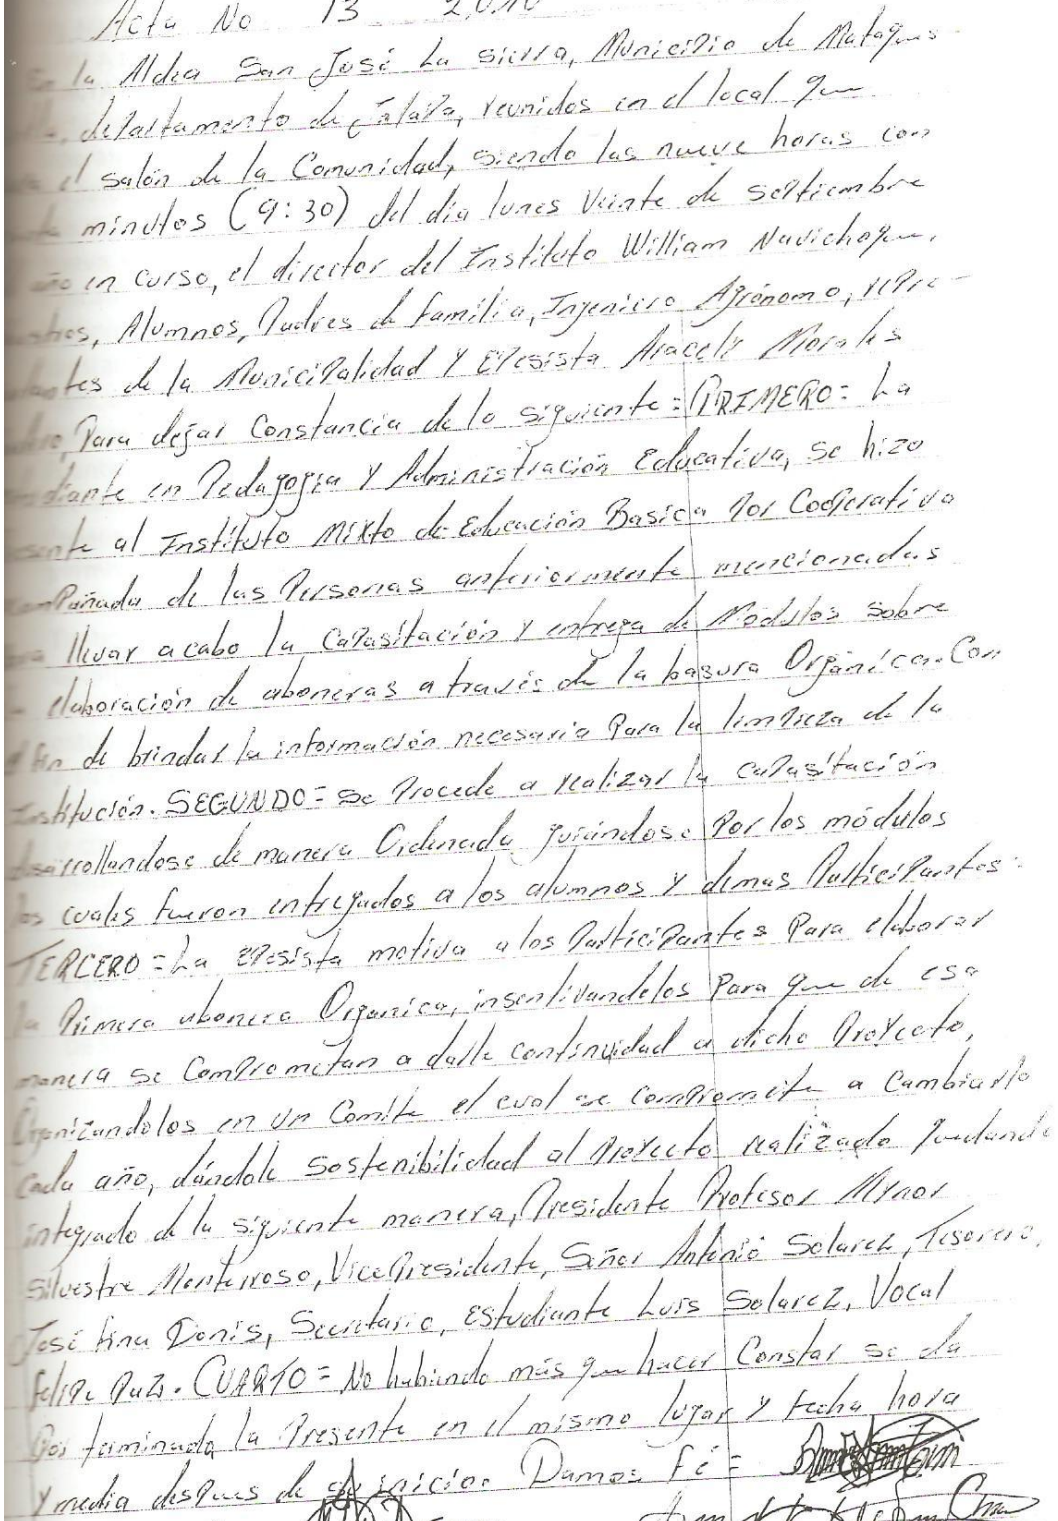 Acta No 13 2,010
la Aldea San José La Sierra, Municipio de Mataques
departamento de Jalapa, reunidos en el local que
el salón de la Comunidad, siendo las nueve horas con
minutos (9:30) del día lunes Veinte de septiembre
año en curso, el director del Instituto William Navichoque,
Alumnos, Padres de familia, Ingeniero Agrónomo, repre-
de la Municipalidad Y Epesista Aracely Morales
Para dejar Constancia de lo siguiente = PRIMERO = La
en Pedagogía Y Administración Educativa, se hizo
al Instituto Mixto de Educación Basica Por Cooperativa
de las Personas anteriormente mencionadas
llevar acabo la Capasitación Y entrega de Módulos sobre
elaboración de aboneras a través de la basura Orgánica. Con
fin de brindar la información necesaria Para la limpieza de la
Institución. SEGUNDO = se Procede a realizar la capasitación
desarrollandose de manera Ordenada guiándose Por los módulos
los cuales fueron entregados a los alumnos y demas Participantes.
TERCERO = La epesista motiva a los Participantes Para elaborar
la Primera abonera Organica, insentivandolos Para que de esa
manera se Comprometan a darle continuidad a dicho Proyecto,
Organizandolos en un Comite el cual se compromete a Cambiarlo
cada año, dándole Sostenibilidad al Proyecto realizado quedando
integrado de la siguiente manera, Presidente Profesor Mynor
Silvestre Monterroso, VicePresidente, Señor Antonio Solarez, Tesorero,
José Donis, Secretario, Estudiante Luis Solarez, Vocal
felipe Paz. CUARTO = No habiendo más que hacer Constar se da
Por terminada la Presente en el mismo lugar y fecha hora
Y media despues de su inicio. Damos Fé =